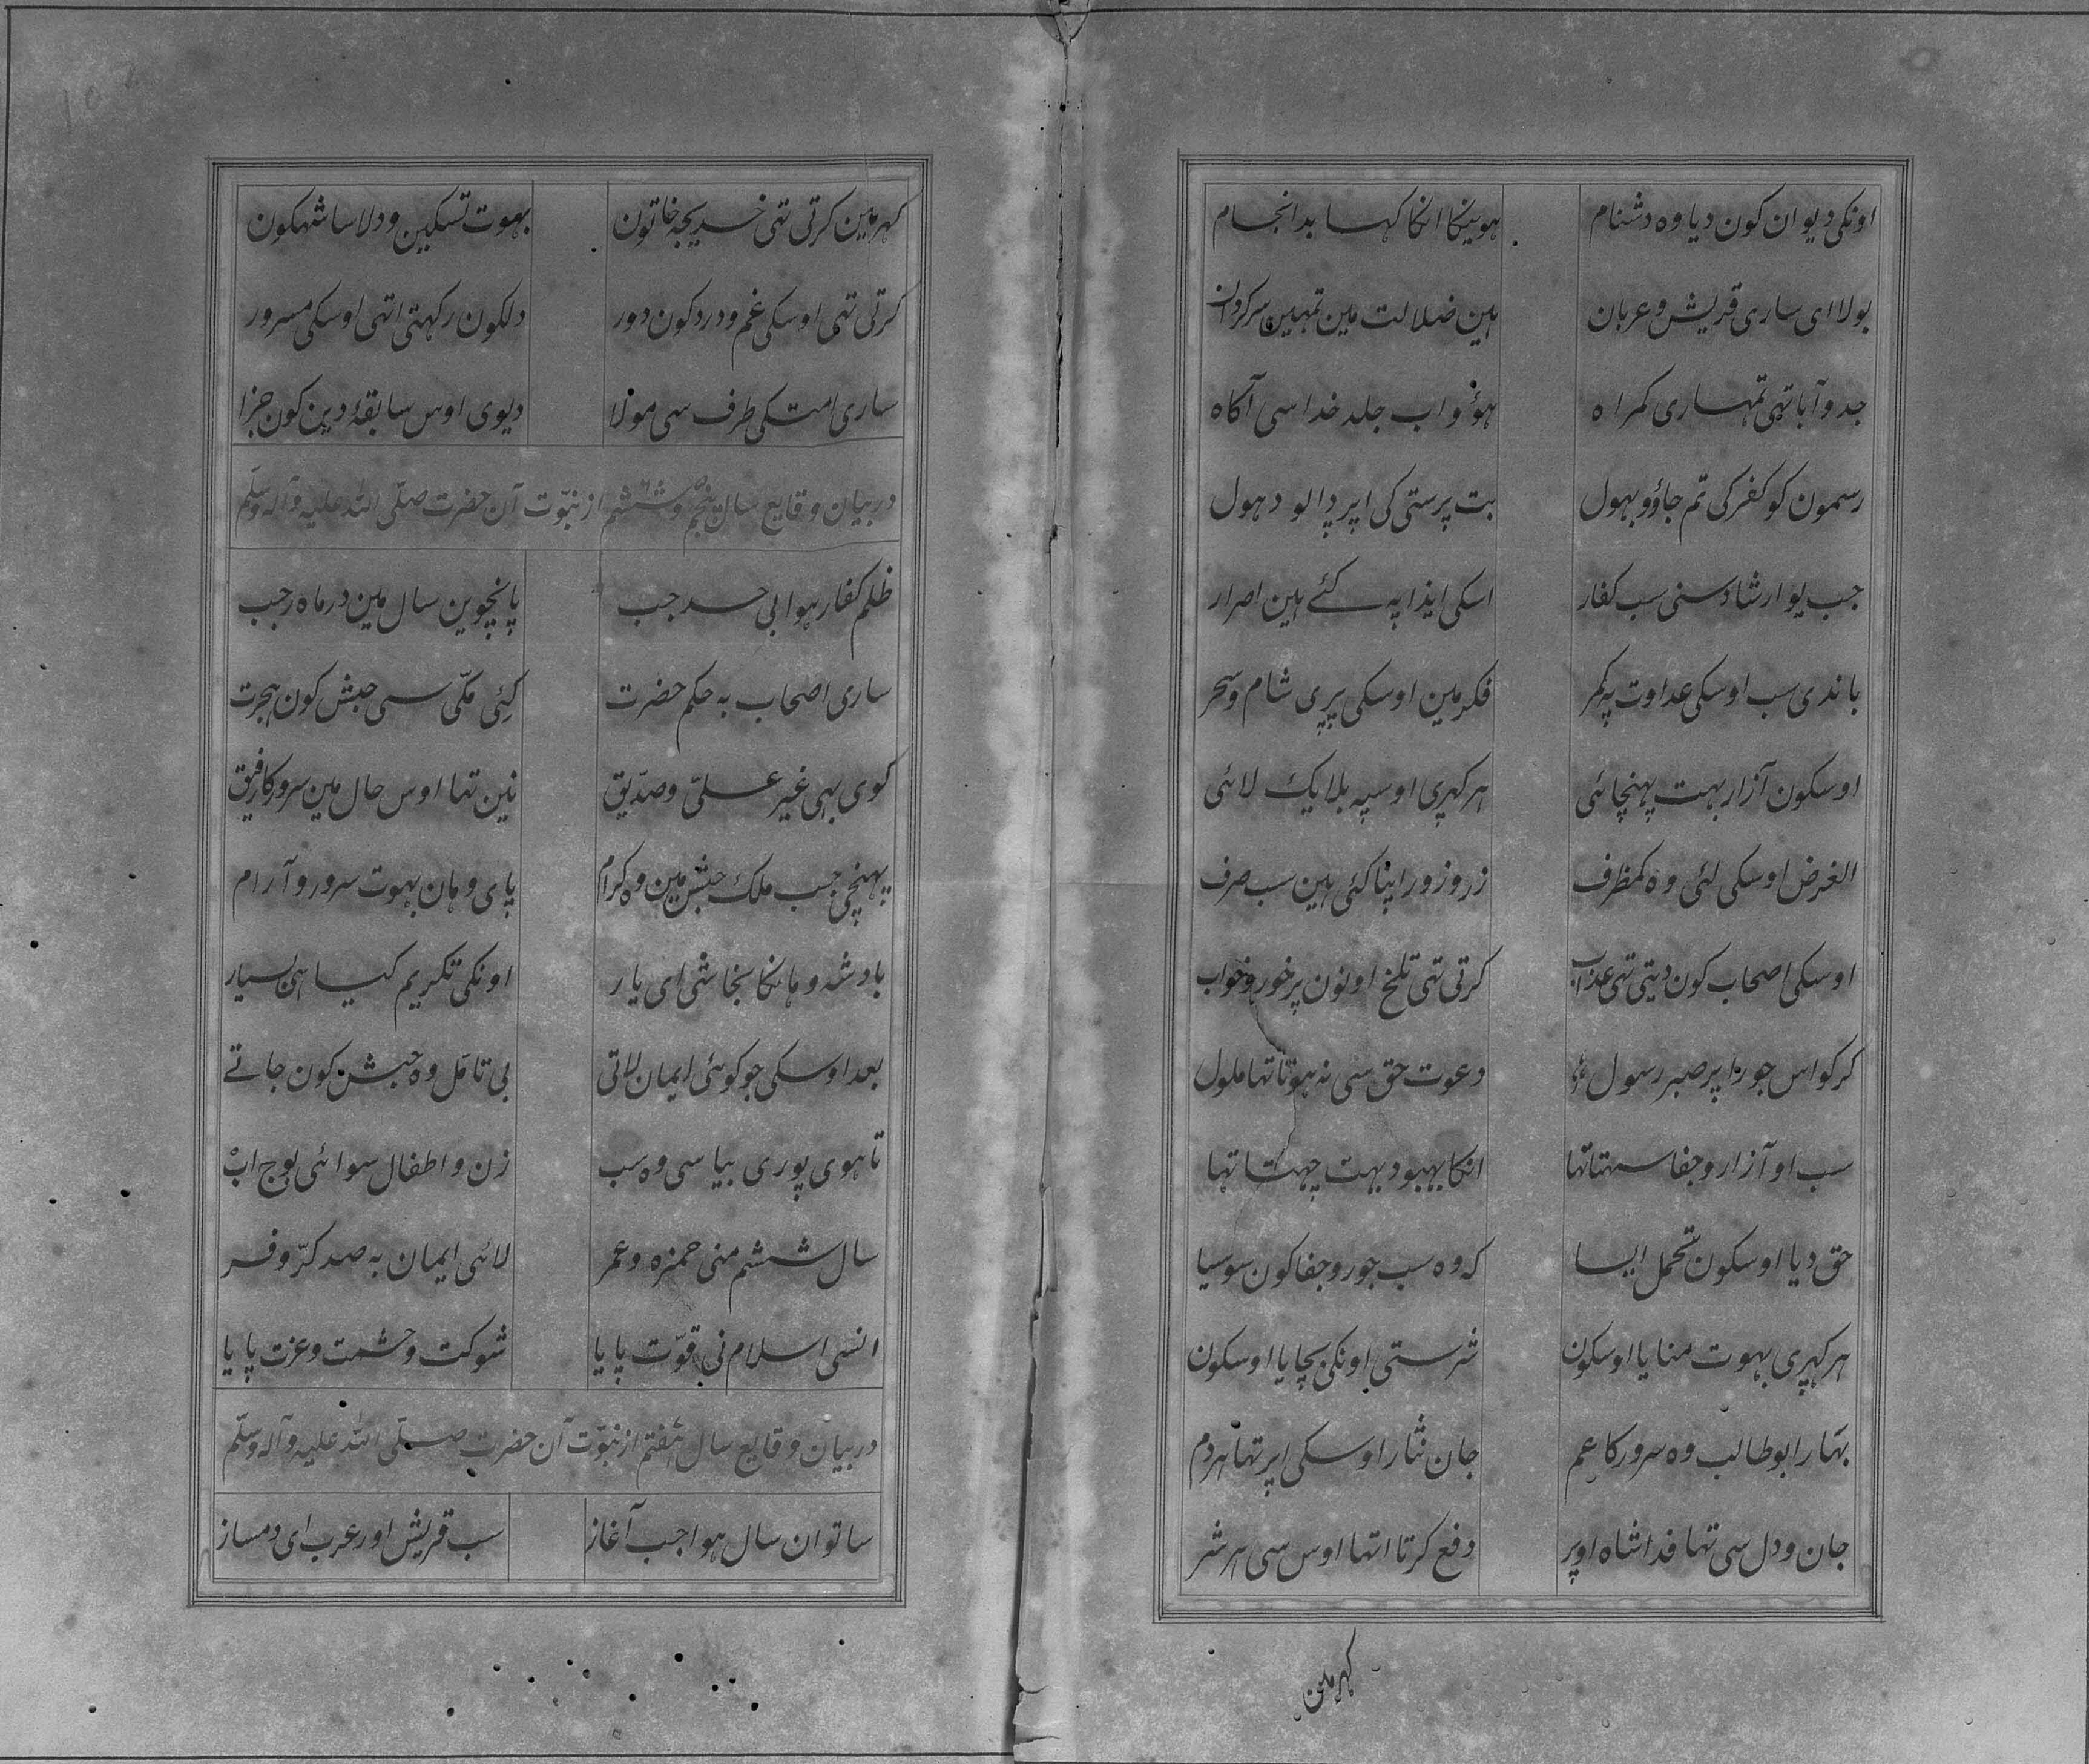 اونکی دیوان کون دیا وہ دشنام ہوینکا انکا کہا بد انجام
بولا ای ساری قریش و عربان ہین ضلالت مین تمہین سرکردان
جد و آبا تہی تمہاری کمراہ ہؤو اب جلد خدا سی آکاہ
رسمون کو کفر کی تم جاؤ بہول بت پرستی کی اپر ڈالو دہول
جب یو ارشاد سنی سب کفار اسکی ایذا پہ کئے ہین اصرار
باندی سب اوسکی عداوت پہ کمر فکر مین اوسکی پری شام و سحر
اوسکون آزار بہت پہنچائی ہر کہری اوسپہ بلا یک لائی
الغرض اوسکی لئی وہ کمظرف زر و زور اپنا کئی ہین سب صرف
اوسکی اصحاب کون دیتی تہی عذاب کرتی تہی تلخ اونون پر خور و خواب
کر کو اس جور پر صبر رسول دعوت حق سی نہ ہوتا تہا ملول
سب او آزار و جفا سہتا تہا انکا بہبود بہت چہتا تہا
حق دیا اوسکون تحمل ایسا کہ وہ سب جور و جفا کون سوسیا
ہر کہری بہوت منایا اوسکون شر ستی اونکی بچایا اوسکون
بہار ابو طالب وہ سرور کا عم جان نثار اوسکی اپر تہا ہردم
جان و دل سی تہا فدا شاہ اوپر دفع کرتا اتہا اوس سی ہر شر
کہر مین
کہر مین کرتی تہی خدیجہ خاتون بہوت تسکین و دلاسا شہکون
کرتی تہی اوسکی غم و درد کون دور دلکون رکہتی اتہی اوسکی مسرور
ساری امت کی طرف سی مولا دیوی اوس سابقۂ دین کون جزا
در بیان وقایع سال پنجم و ششم از نبوّت آن حضرت صلّی اللہ علیہ وآلہ وسلّم
ظلم کفار ہوا بی حد جب پانچوین سال مین در ماہ رجب
ساری اصحاب بہ حکم حضرت کیئی مکّی سی حبش کون ہجرت
کوی بہی غیر علیّ و صدّیق نین تہا اوس حال مین سرور کا رفیق
پہنچی جب ملک حبش مین وہ کرام پای وہان بہوت سرور و آرام
بادشہ وہانکا نجاشی ای یار اونکی تکریم کیا ہی بسیار
بعد اوسکی جو کوئی ایمان لاتی بی تامّل وہ حبش کون جاتے
تا ہوی پوری بیاسی وہ سب زن و اطفال سوائی بوج اب
سال ششم منی حمزہ و عمر لائی ایمان بہ صد کرّ و فر
انسی اسلام نی قوّت پایا شوکت و حشمت و عزت پایا
در بیان وقایع سال ہفتم از نبوّت آن حضرت صلّی اللہ علیہ وآلہ وسلّم
ساتوان سال ہوا جب آغاز سب قریش اور عرب ای دمساز